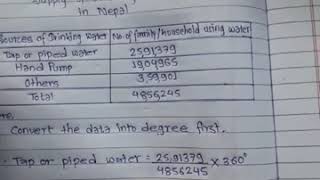 in Nepal
Sources of Drinking Water No. of family/Household using water
Tap or piped water 2591379
Hand Pump 1904965
Others 359901
Total 4856245
Convert the data into degree first.
Tap or piped water = 2591379/4856245 × 360°